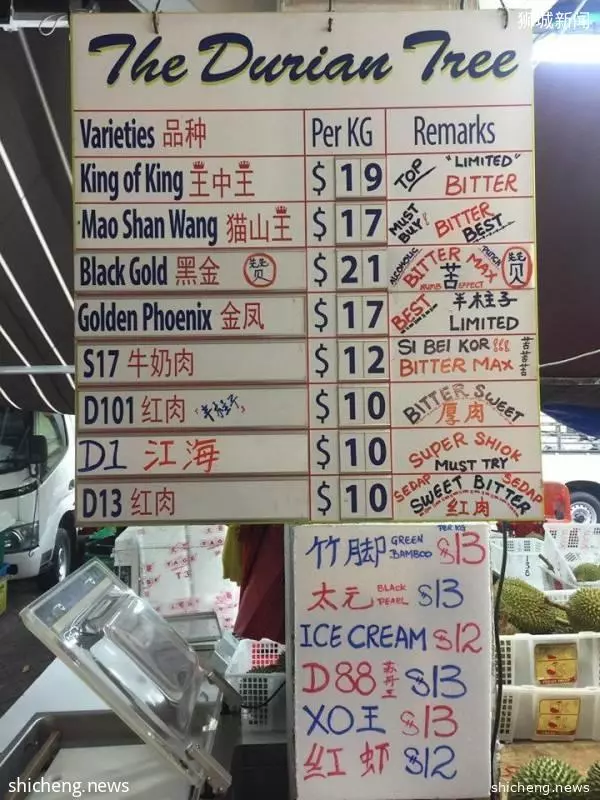 狮城新闻
The Durian Tree
Varieties 品种 Per KG Remarks
King of King 王中王 $ 19 TOP "LIMITED" BITTER
Mao Shan Wang 猫山王 $ 17 MUST BUY! BITTER BEST
Black Gold 黑金 $ 21 ALCOHOLIC BITTER MAX PUNCH 苦 NUMB EFFECT
Golden Phoenix 金凤 $ 17 BEST 羊柱子 LIMITED
S17 牛奶肉 $ 12 SI BEI KOR 苦苦苦 BITTER MAX
D101 红肉 $ 10 BITTER SWEET 厚肉
D1 江海 $ 10 SUPER SHIOK MUST TRY
D13 红肉 $ 10 SEDAP SWEET BITTER SEDAP 红肉
PER KG
竹脚 GREEN BAMBOO $13
太元 BLACK PEARL $13
ICE CREAM $12
D88 苏丹王 $13
XO王 $13
红虾 $12
shicheng.news
shicheng.news